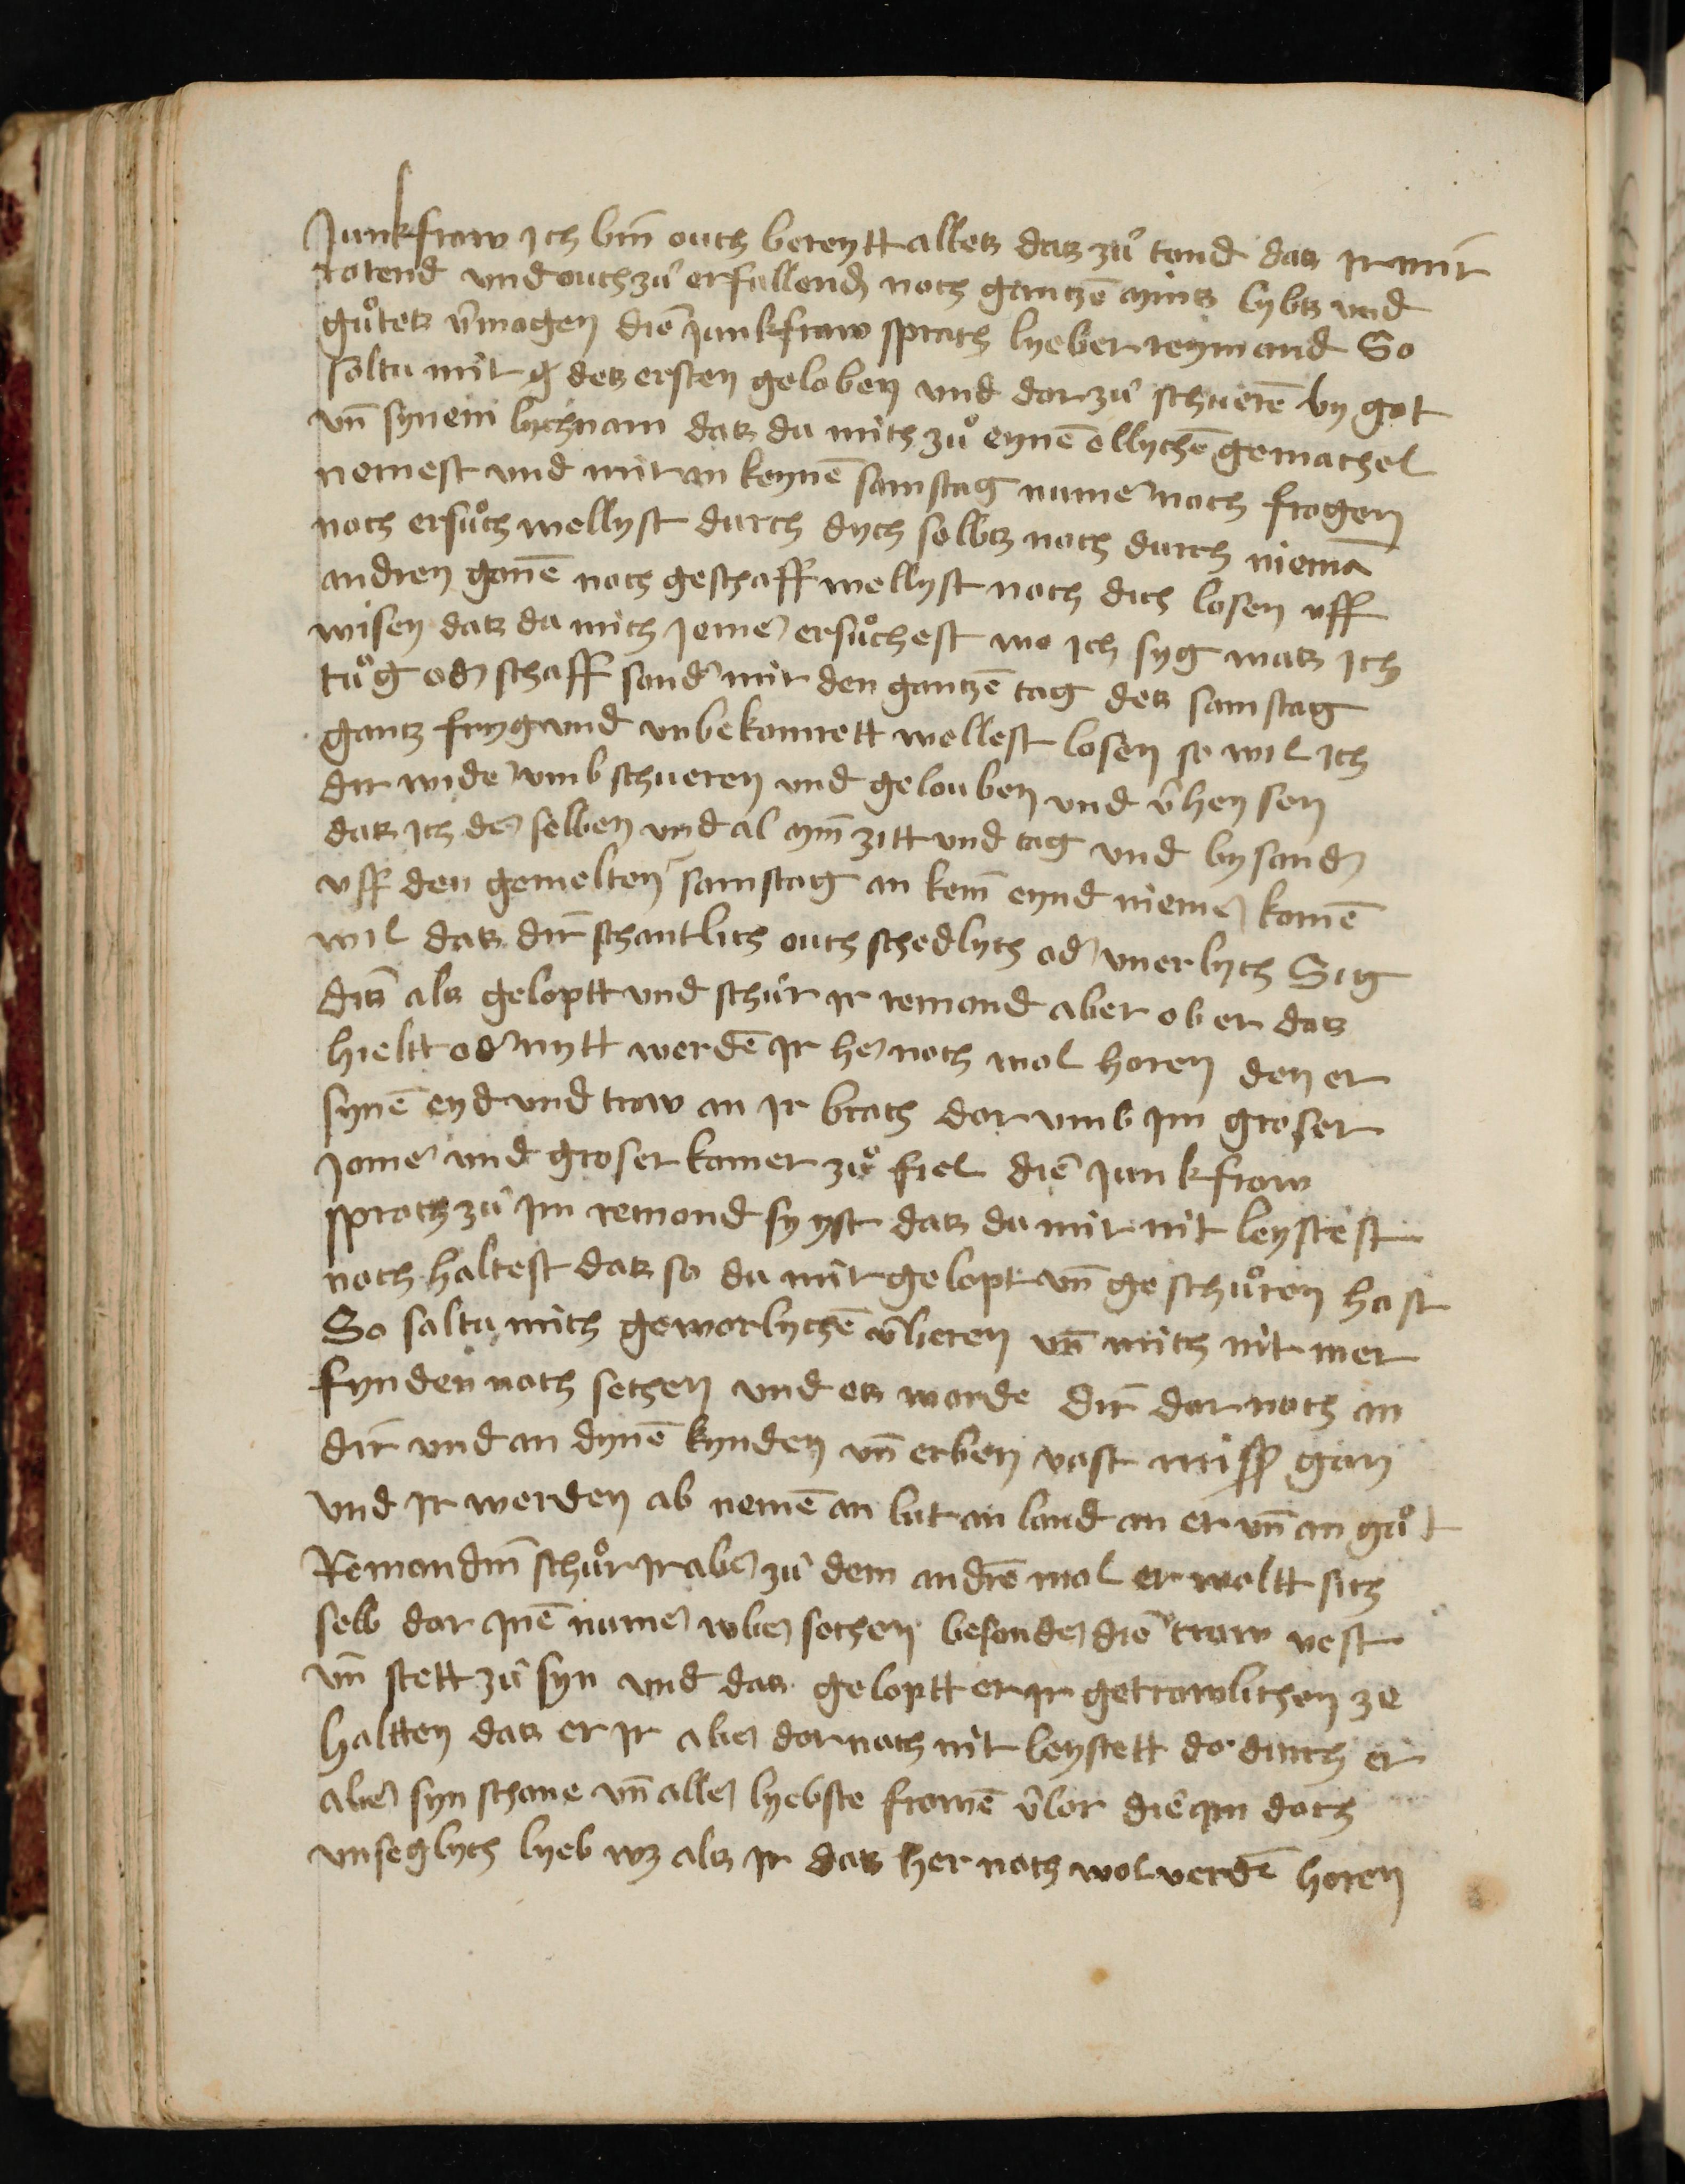 Junkfrow ich bin̄ ouch bereytt alles das zů tond das ir mir
rotend vnd ouch zů erfullend noch gantzē mins lybs vnd
gůtes v̄mogen die junkfrow sprach lyeber reymand So
soltu mir des ersten geloben vnd dor zů schwerē by got
vn̄ synem lychnam das du mich zů eynē ellychē gemachel
nemest vnd mir an keynē samstag nume noch frogen
noch ersůch wellyst durch dych selbs noch durch niemā
andren gonē noch geschaff wellyst noch dich losen vff
wisen das du mich jeme ersůchest wo ich syg was ich
tůg od schaff sond mir den gantzē tag des samstag
gantz fryg vnd vnbekomrett wellest losen so wil ich
dir wide vmb schueren vnd gelouben vnd v̄heysen
das ich de selben vnd al min̄ zitt vnd tag vnd bysond
vff den gemelten samstag an kein eynd nieme komē
wil das dir schantlich ouch schedlych od vnerlych Sig
dis als geloptt vnd schůr ir remond aber ob er das
hieltt od nytt werdē ir he noch wol horen den er
synē eyd vnd trow an ir brach dor vmb im groser
jome vnd groser komer zů fiel die junkfrow
sproch zů im remond sy yst das du mir nit leystest
noch haltest das so du mir gelopt vn̄ geschůren hast
So soltu mich geworlychē v̄lieren vn̄ mich nit mer
fynden noch sechen vnd es worde dir dor noch an
dir vnd an dynē kynden vn̄ erben vast miß gan
vnd ir werden ab nemē an lut an land an er vn̄ an gůt
Remondin̄ schůr ir abe zů dem andrē mol er woltt sich
selb dor inē nume vbe sechen besonde die trow vest
vn̄ stett zů syn vnd das geloptt er ir getrowlichen ze
haltten das er ir abe dor noch nit leystett do durch er
abe syn schone vn̄ alle lyebste frowē v̄lor die im doch
vnseglych lyeb wz als ir das her noch wol verdē horen